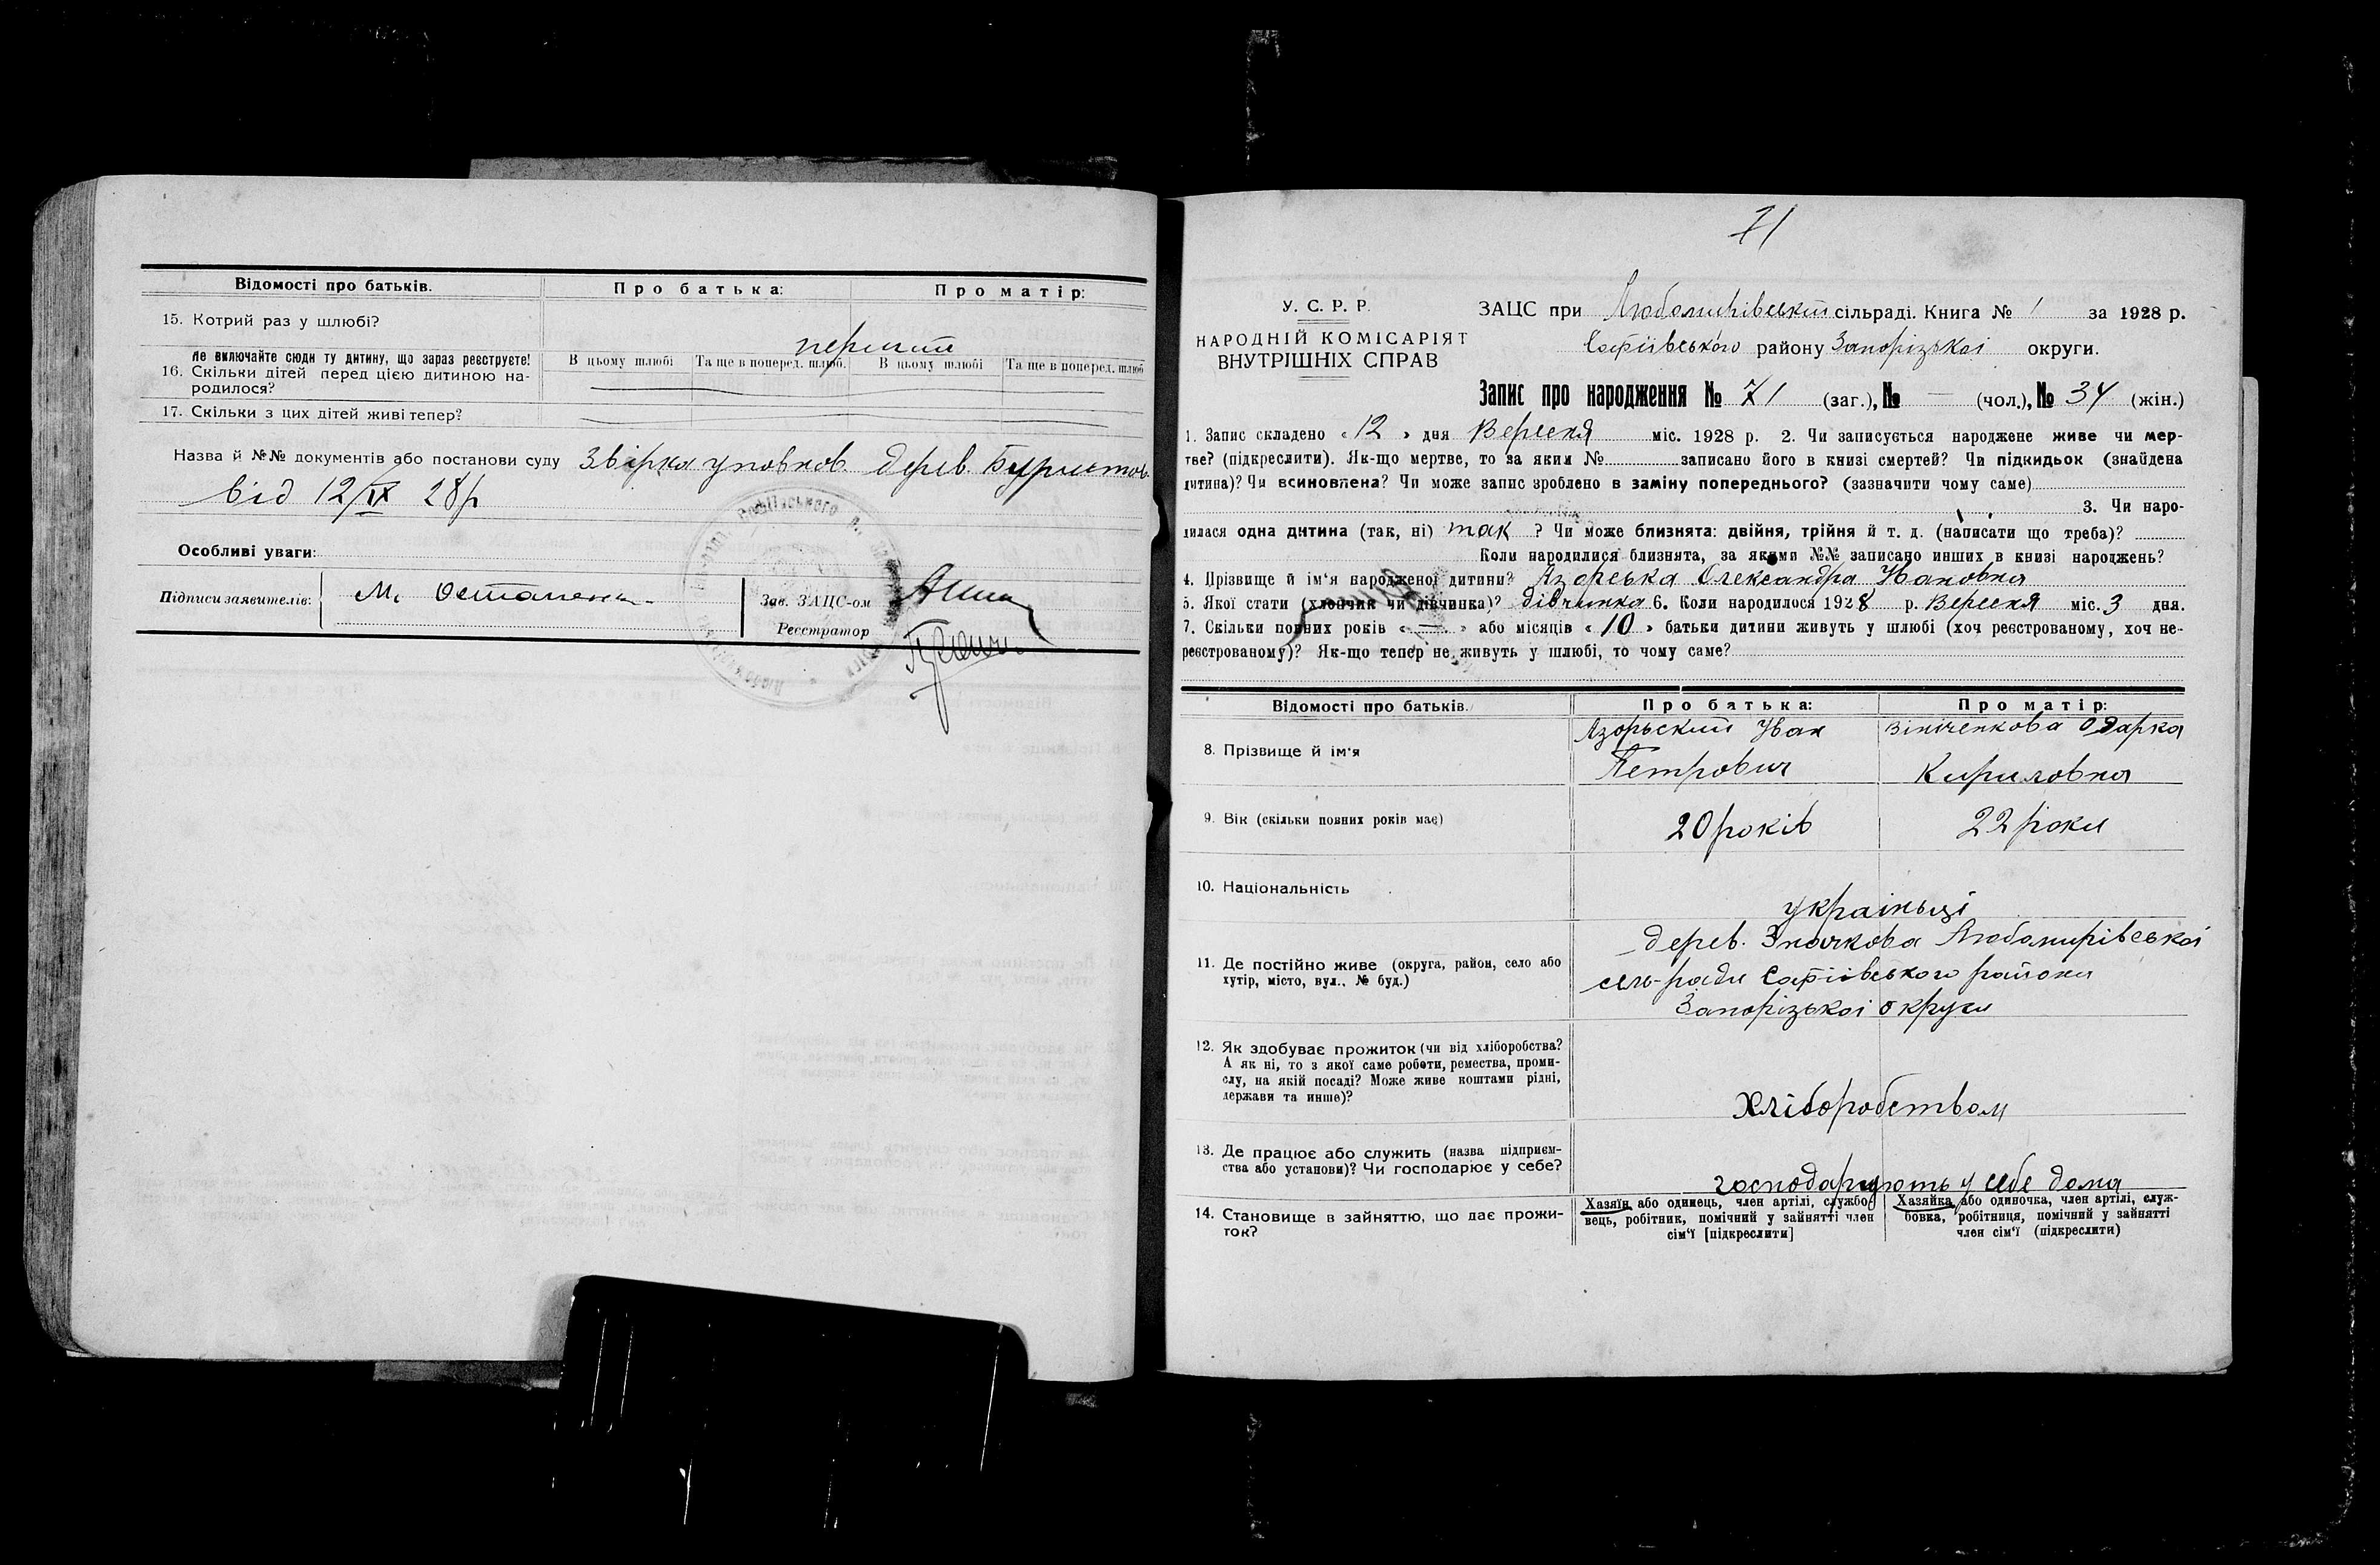 Відомості про батьків.
Про батька:
Про матір:
15. Котрий раз у шлюбі?
перший
Не включайте сюди ту дитину, що зараз реєструєте!
16. Скільки дітей перед цією дитиною на-
родилося?
В цьому шлюбі
Та ще в поперед. шлюб.
В цьому шлюбі
Та ще в поперед. шлюб
17. Скільки з цих дітей живі тепер?
Назва й №№ документів або постанови суду Звірка уповнов. дерев.
від 12/IX 28р
Особливі уваги:
Підписи заявителів:
М. Остапенко
Зав. ЗАЦС-ом
Реєстратор
71
У. С. Р. Р.
НАРОДНІЙ КОМІСАРІЯТ
ВНУТРІШНІХ СПРАВ
ЗАЦС при Любомирівській сільраді. Книга № 1 за 1928 р.
Софіївського району Запорізької округи.
Запис про народження № 71 (заг.), № — (чол.), № 34 (жін.)
1. Запис складено «12» дня Вересня міс. 1928 р. 2. Чи записується народжене живе чи мер-
тве? (підкреслити). Як-що мертве, то за яким № записано його в книзі смертей? Чи підкидьок (знайдена
дитина)? Чи всиновлена? Чи може запис зроблено в заміну попереднього? (зазначити чому саме)
3. Чи наро-
дилася одна дитина (так, ні) так ? Чи може близнята: двійня, трійня й т. д. (написати що треба)?
Коли народилися близнята, за якими №№ записано инших в книзі народжень?
4. Прізвище й ім'я народженої дитини? Азорська Олександра Ивановна
5. Якої стати (хлопчик чи дівчинка)? дівчинка 6. Коли народилося 1928 р. Вересня міс. 3 дня.
7. Скільки повних років «—» або місяців «10» батьки дитини живуть у шлюбі (хоч реєстрованому, хоч не-
реєстрованому)? Як-що тепер не живуть у шлюбі, то чому саме?
Відомості про батьків.
Про батька:
Про матір:
8. Прізвище й ім'я
Азорьский Иван
Петрович
Вініченкова Одарка
Кириловна
9. Вік (скільки повних років має)
20 років
22 роки
10. Національність
українці
11. Де постійно живе (округа, район, село або
хутір, місто, вул., № буд.)
дерев. Значкова Любомирівської
сель-ради Софіівського района
Запорізької округи
12. Як здобуває прожиток (чи від хліборобства?
А як ні, то з якої саме роботи, ремества, проми-
слу, на якій посаді? Може живе коштами рідні,
держави та инше)?
Хліборобством
13. Де працює або служить (назва підприєм-
ства або установи)? Чи господарює у себе?
господарюють у себе дома
14. Становище в зайняттю, що дає прожи-
ток?
Хазяїн або одинець, член артілі, службо-
вець, робітник, помічний у зайнятті член
сім'ї [підкреслити]
Хазяйка або одиночка, член артілі, служ-
бовка, робітниця, помічний у зайнятті
член сім'ї (підкреслити)